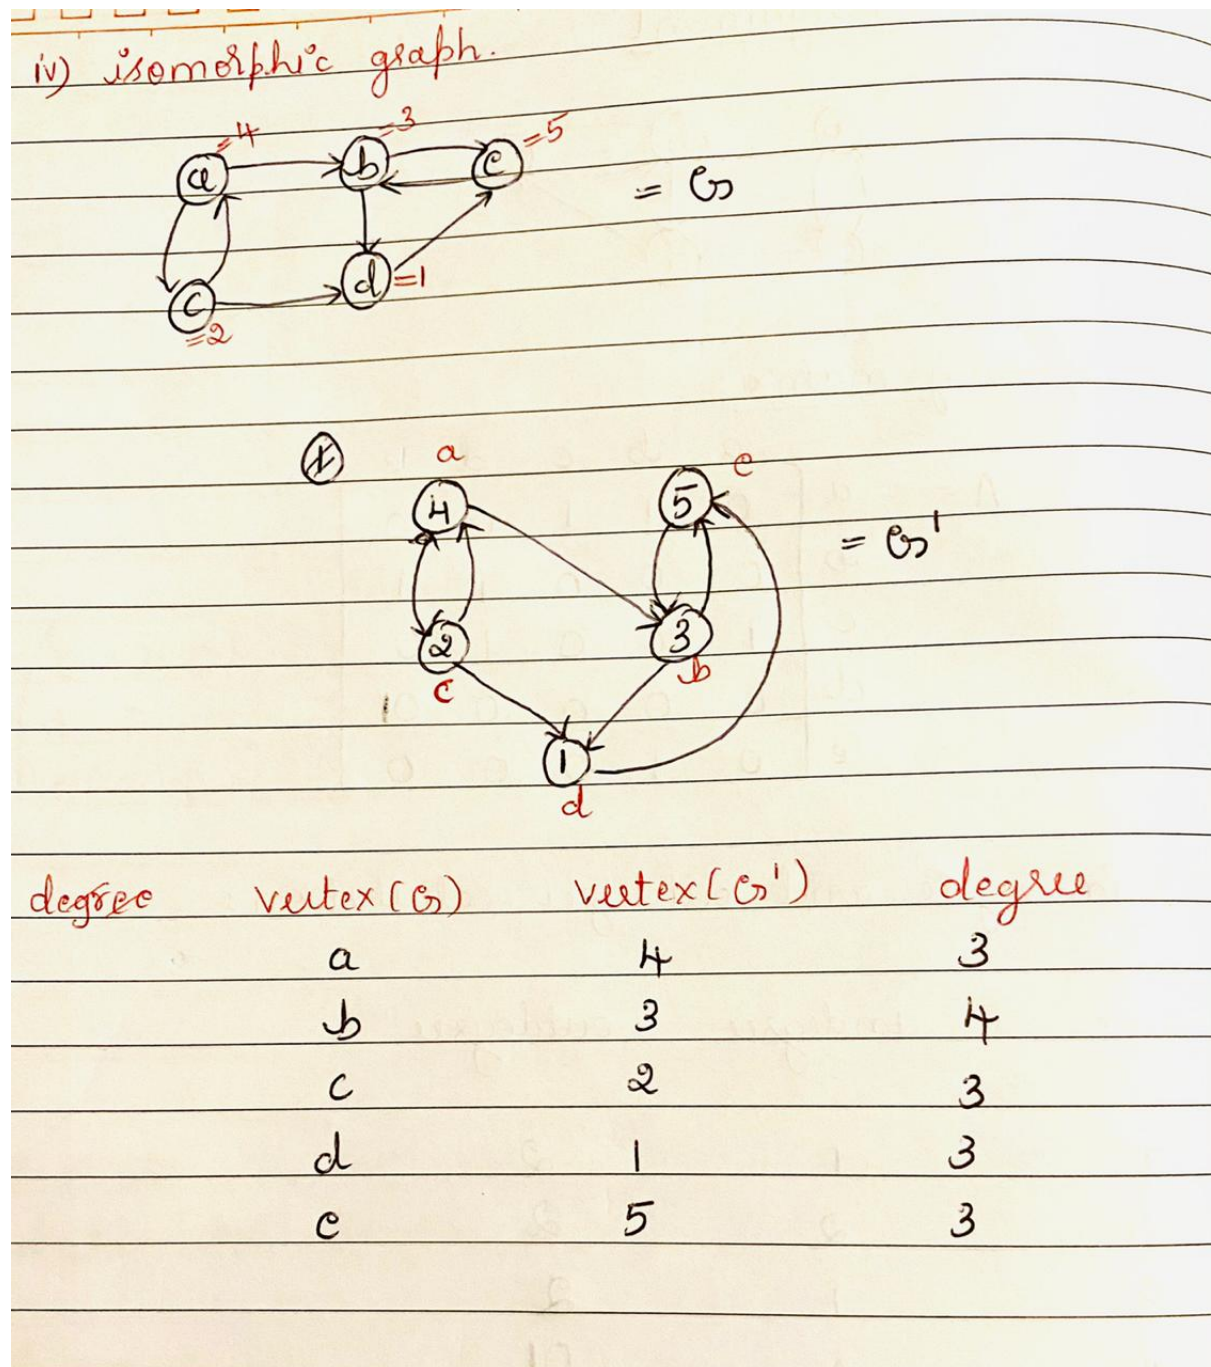 iv) isomorphic graph.
=4 =3 =5
a b e = G
c d =1
=2
a e
4 5 = G'
2 3
c b
1
d
degree vertex (G) vertex (G') degree
a 4 3
b 3 4
c 2 3
d 1 3
e 5 3